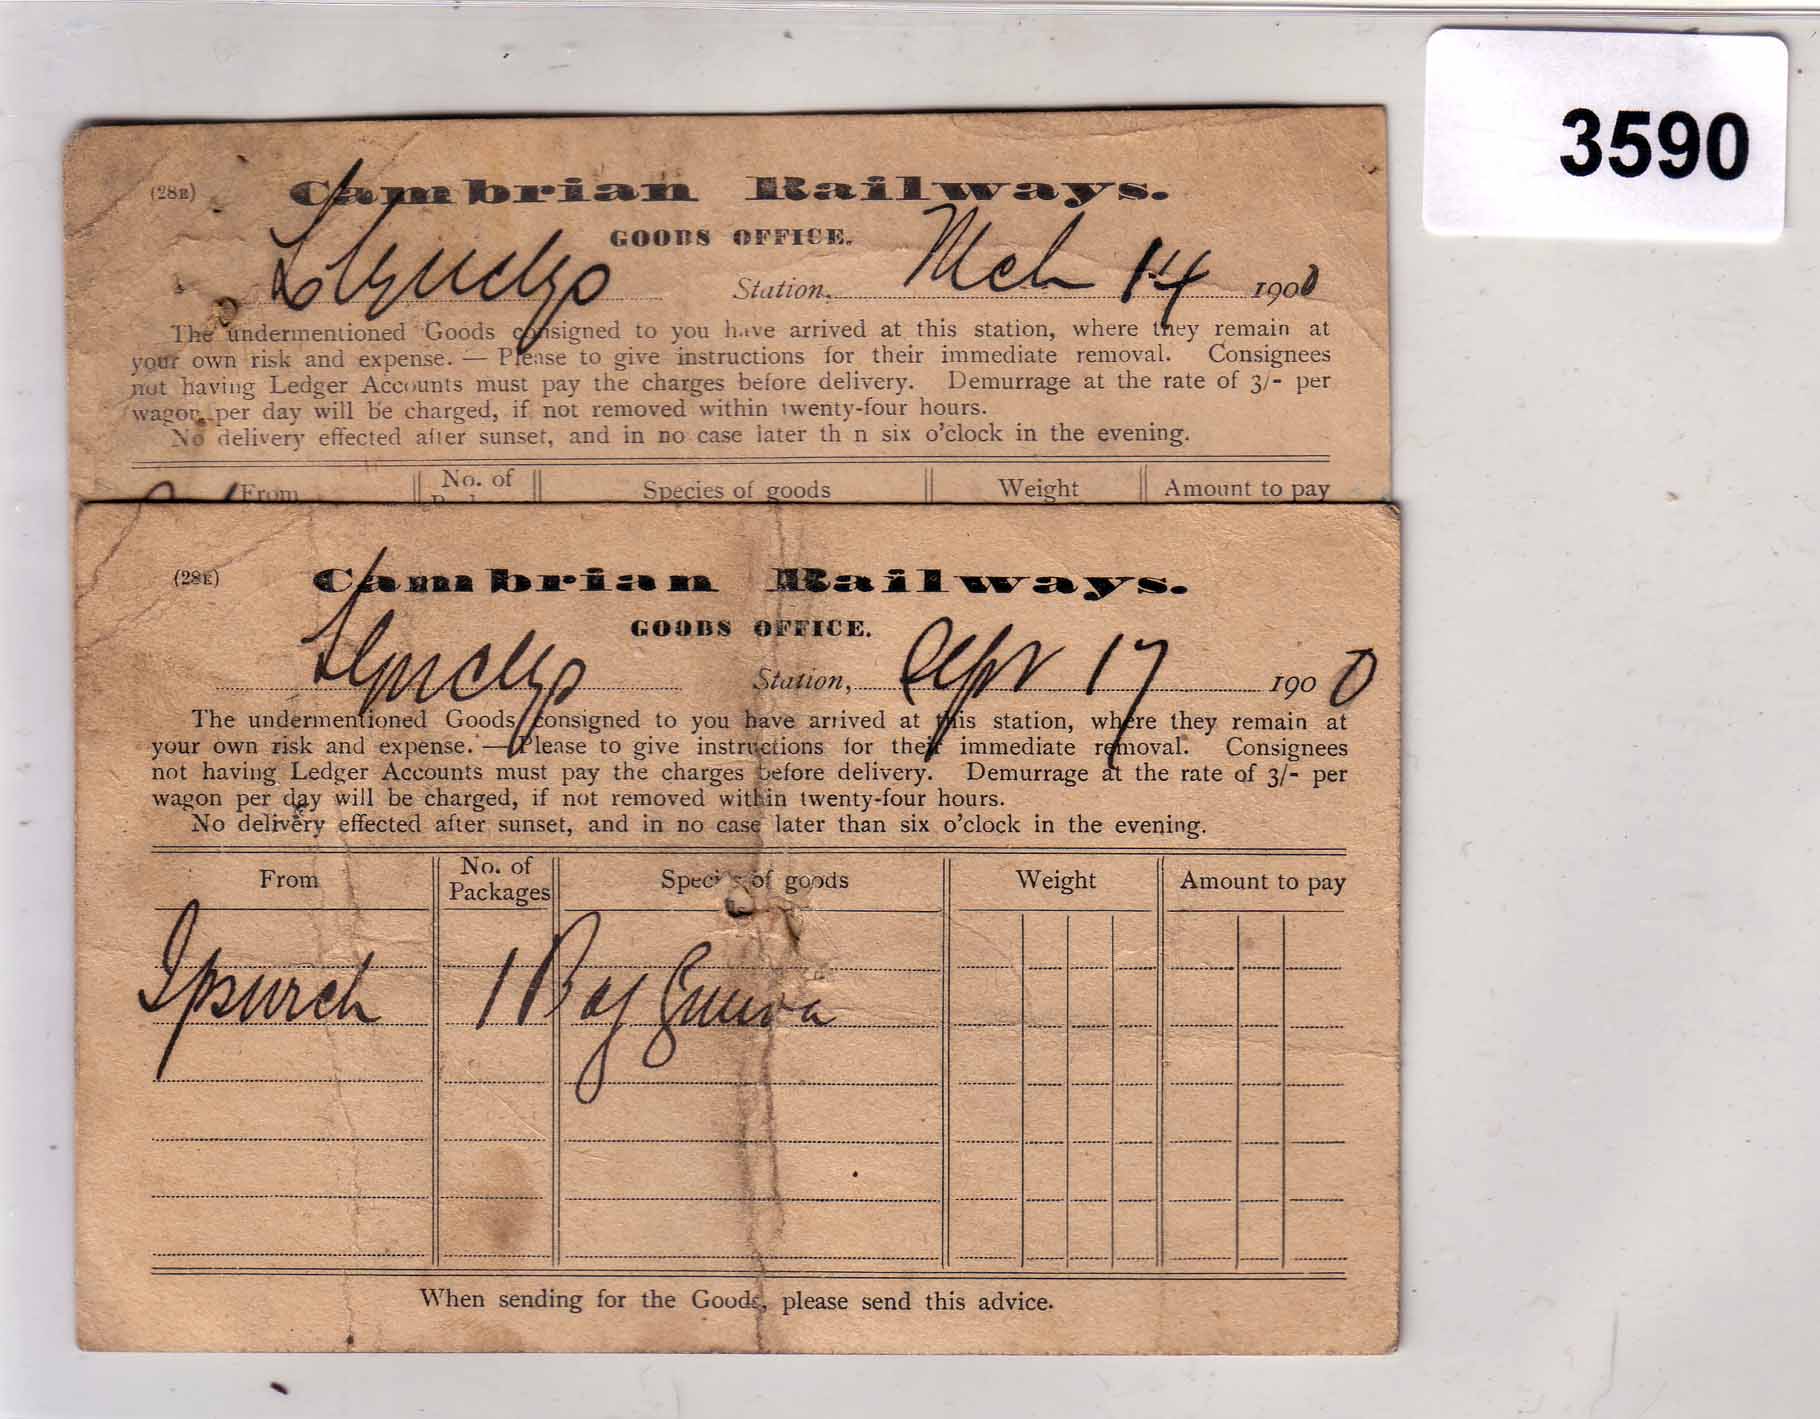 3590
(28E)
Cambrian Railways.
GOODS OFFICE.
Llynclys Station, Mch 14 1900
The undermentioned Goods consigned to you have arrived at this station, where they remain at
your own risk and expense. — Please to give instructions for their immediate removal. Consignees
not having Ledger Accounts must pay the charges before delivery. Demurrage at the rate of 3/- per
wagon per day will be charged, if not removed within twenty-four hours.
No delivery effected after sunset, and in no case later th n six o'clock in the evening.
From No. of Species of goods Weight Amount to pay
(28E)
Cambrian Railways.
GOODS OFFICE.
Llynclys Station, Apr 17 1900
The undermentioned Goods consigned to you have arrived at this station, where they remain at
your own risk and expense. — Please to give instructions for their immediate removal. Consignees
not having Ledger Accounts must pay the charges before delivery. Demurrage at the rate of 3/- per
wagon per day will be charged, if not removed within twenty-four hours.
No delivery effected after sunset, and in no case later than six o'clock in the evening.
From No. of Packages Species of goods Weight Amount to pay
Ipswich 1 Bag Guano
When sending for the Goods, please send this advice.